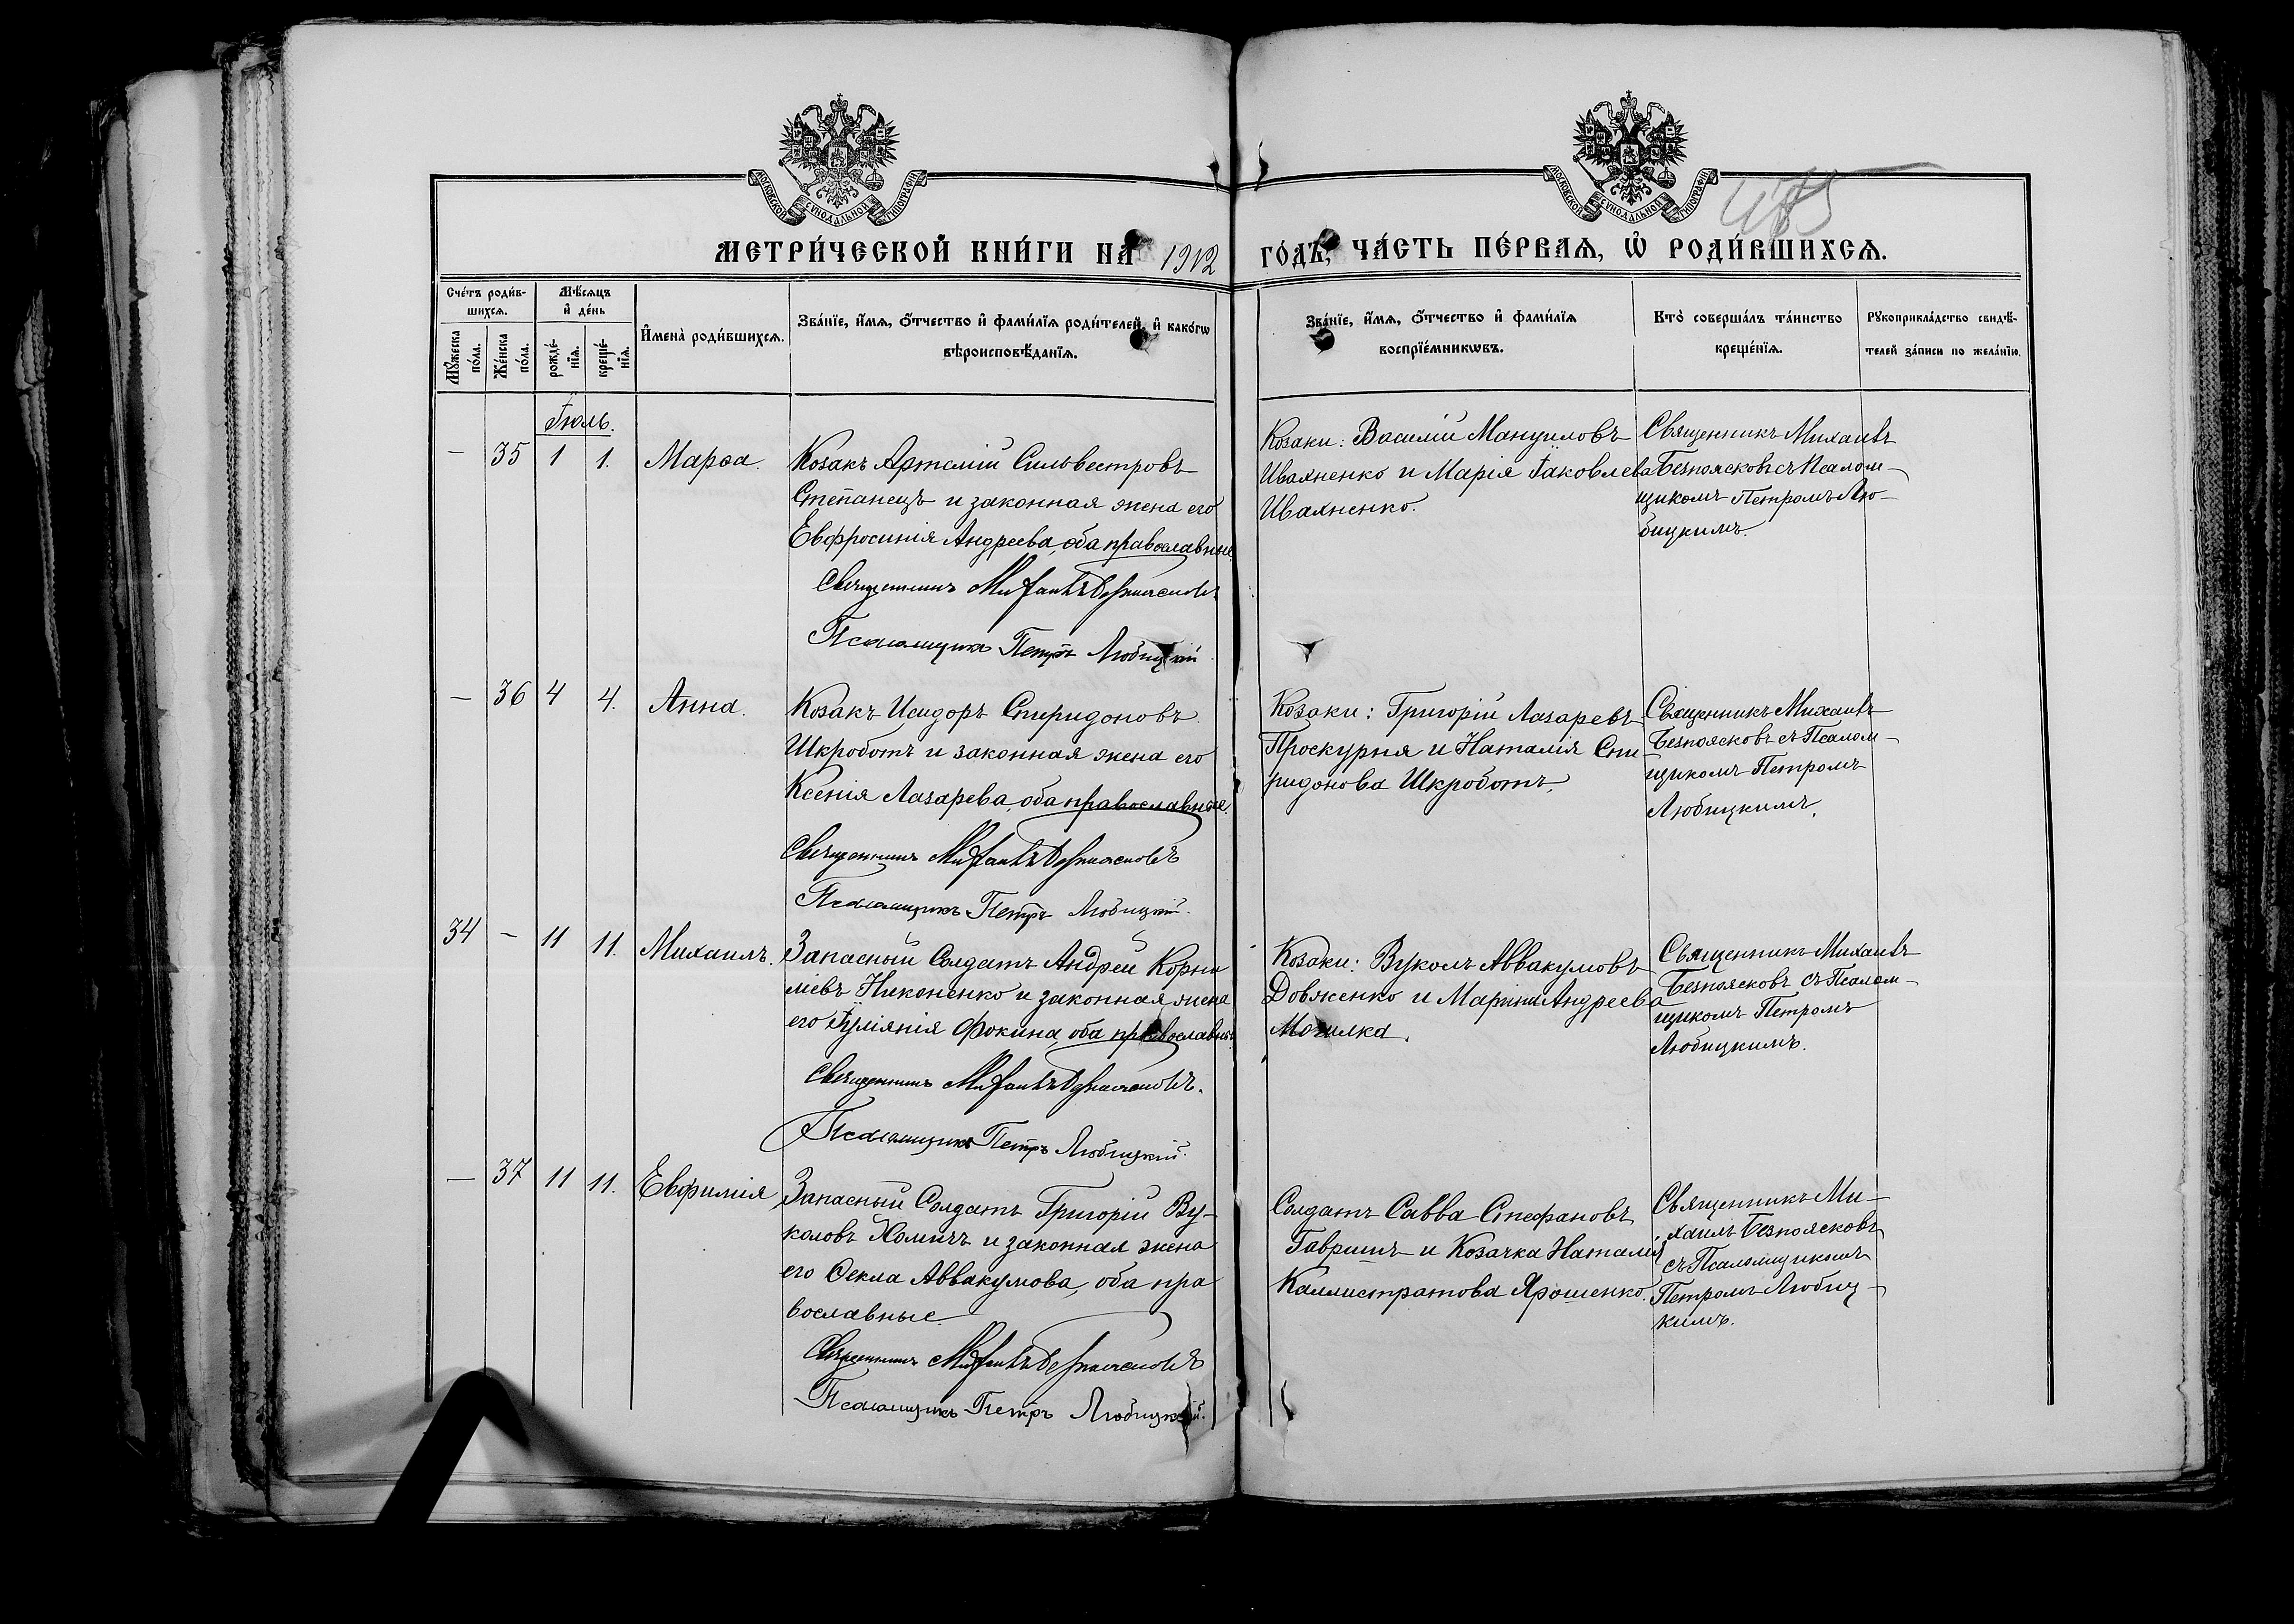 МОСКОВСКОЙ СѴНОДАЛЬНОЙ ТИПОГРАФІИ
МОСКОВСКОЙ СѴНОДАЛЬНОЙ ТИПОГРАФІИ
485
МЕТРИ́ЧЕСКОЙ КНИ́ГИ НА 1912
ГО́ДЪ, ЧА́СТЬ ПЕ́РВАѦ, Ѽ РОДИ́ВШИХСѦ.
Сче́тъ роди́в-
шихсѧ.
Мꙋ́жеска по́ла.
Же́нска по́ла.
Мѣ́сѧцъ
и҆ де́нь
рожде́-нїѧ.
креще́-нїѧ.
И҆мена̀ роди́вшихсѧ.
Зва́нїе, и҆́мѧ, ѻ҆́тчество и҆ фами́лїѧ роди́телей, и҆ како́гѡ
вѣроисповѣ́данїѧ.
Зва́нїе, и҆́мѧ, ѻ҆́тчество и҆ фами́лїѧ
воспрїе́мникѡвъ.
Кто̀ соверша́лъ та́инство
креще́нїѧ.
Рꙋкоприкла́дство свидѣ́-
телей за́писи по жела́нїю.
Іюль.
— 35 1 1. Марѳа.
Козакъ Артемій Сильвестровъ
Степанецъ и законная жена его
Евфросинія Андреева, оба православные
Священникъ Михаилъ Безпоясковъ
Псаломщикъ Петръ Любицкій
Козаки: Василій Мануиловъ
Ивахненко и Марія Іаковлева
Ивахненко.
Священникъ Михаилъ
Безпоясковъ съ Псалом-
щикомъ Петромъ Лю-
бицкимъ.
— 36 4 4. Анна.
Козакъ Исидоръ Спиридоновъ
Шкроботъ и законная жена его
Ксенія Лазарева, оба православные.
Священникъ Михаилъ Безпоясковъ
Псаломщикъ Петръ Любицкій.
Козаки: Григорій Лазаревъ
Проскурня и Наталія Спи-
ридонова Шкроботъ.
Священникъ Михаилъ
Безпоясковъ съ Псалом-
щикомъ Петромъ
Любицкимъ.
34 — 11 11. Михаилъ.
Запасный Солдатъ Андрей Корни
ліевъ Никоненко и законная жена
его Іуліянія Фокина, оба православные
Священникъ Михаилъ Безпоясковъ.
Псаломщикъ Петръ Любицкій.
Козаки: Вуколъ Аввакумовъ
Довженко и Марина Андреева
Могилка.
Священникъ Михаилъ
Безпоясковъ съ Псалом-
щикомъ Петромъ
Любицкимъ.
— 37 11 11. Евфимія
Запасный Солдатъ Григорій Ву-
коловъ Хомичъ и законная жена
его Ѳекла Аввакумова, оба пра
вославные.
Священникъ Михаилъ Безпоясковъ
Псаломщикъ Петръ Любицкій.
Солдатъ Савва Стефановъ
Гавришъ и Козачка Наталія
Каллистратова Ярошенко.
Священникъ Ми-
хаилъ Безпоясковъ
съ Псаломщикомъ
Петромъ Любиц-
кимъ.